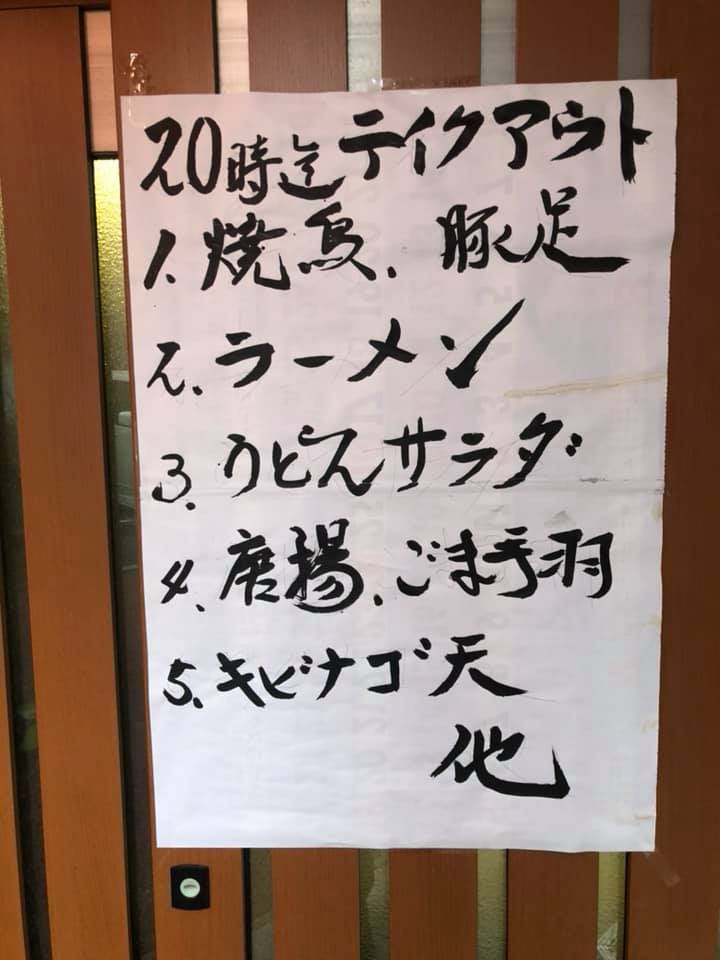 20時迄テイクアウト
1.焼鳥、豚足
2.ラーメン
3.うどんサラダ
4.唐揚、ごま手羽
5.キビナゴ天
他